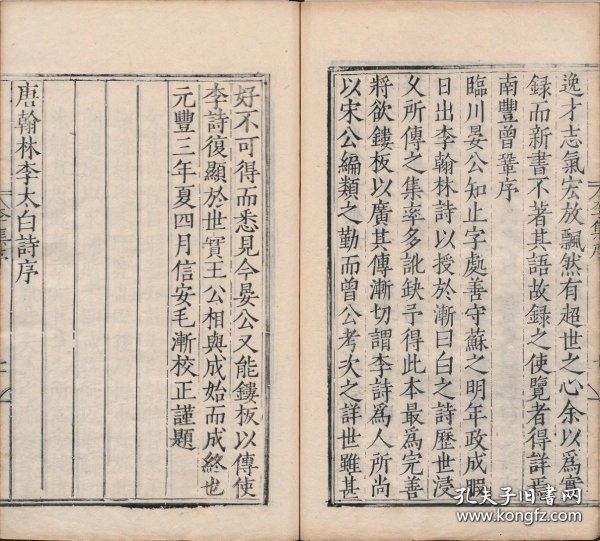 逸才志氣宏放飄然有超世之心余以爲實
録而新書不著其語故録之使覽者得詳焉
南豐曾鞏序
臨川晏公知止字處善守蘇之明年政成暇
日出李翰林詩以授於漸曰白之詩歷世浸
乆所傳之集率多訛缺予得此本最爲完善
將欲鏤板以廣其傳漸切謂李詩爲人所尚
以宋公編類之勤而曾公考次之詳世雖甚
好不可得而悉見今晏公又能鏤板以傳使
李詩復顯於世實王公相與成始而成終也
元豐三年夏四月信安毛漸校正謹題
唐翰林李太白詩序
孔夫子旧书网
www.kongfz.com